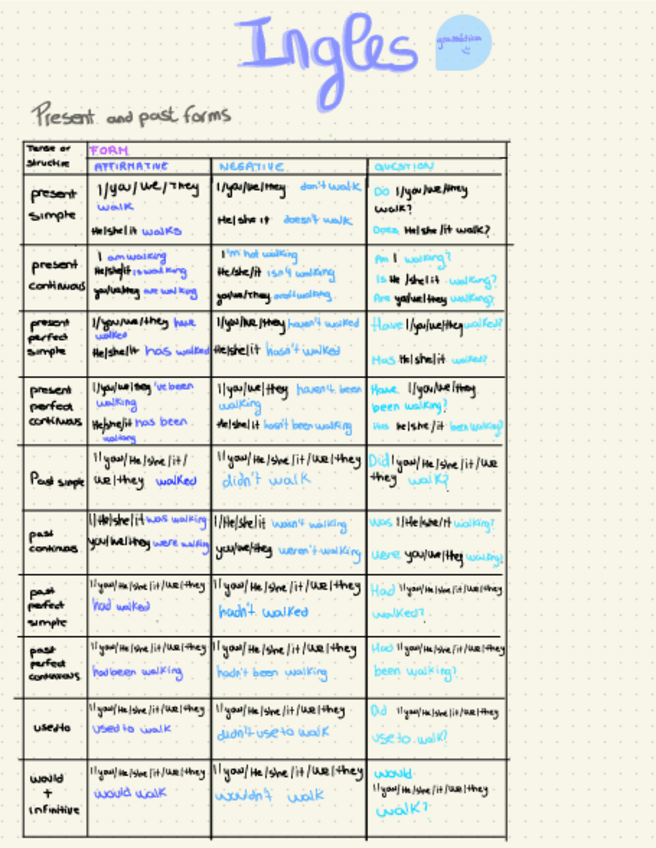 Ingles
gramática
Present and past forms
Tense or structure
FORM
AFFIRMATIVE
NEGATIVE
QUESTION
present simple
I/you/we/they
walk
He/she/it walks
I/you/we/they don't walk
He/she it doesn't walk
Do I/you/we/they
walk?
Does He/she/it walk?
present continuous
I am walking
He/she/it is walking
you/we/they are walking
I'm not walking
He/she/it isn't walking
you/we/They aren't walking
Am I walking?
Is He/she/it walking?
Are you/we/they walking?
present perfect simple
I/you/we/they have
walked
He/she/it has walked
I/you/we/they haven't walked
He/she/it hasn't walked
Have I/you/we/they walked?
Has He/she/it walked?
present perfect continuous
I/you/we/they 've been
walking
He/she/it has been
walking
I/you/we/they haven't been
walking
He/she/it hasn't been walking
Have I/you/we/they
been walking?
Has He/she/it been walking?
Past simple
I/you/He/she/it/
we/they walked
I/you/He/she/it/we/they
didn't walk
Did I/you/He/she/it/we
they walk?
past continuous
I/He/she/it was walking
you/we/they were walking
I/He/she/it wasn't walking
you/we/they weren't walking
Was I/He/she/it walking?
Were you/we/they walking?
past perfect simple
I/you/He/she/it/we/they
had walked
I/you/He/she/it/we/they
hadn't walked
Had I/you/He/she/it/we/they
walked?
past perfect continuous
I/you/He/she/it/we/they
had been walking
I/you/He/she/it/we/they
hadn't been walking
Had I/you/He/she/it/we/they
been walking?
used to
I/you/He/she/it/we/they
used to walk
I/you/He/she/it/we/they
didn't use to walk
Did I/you/He/she/it/we/they
use to walk?
would + infinitive
I/you/He/she/it/we/they
would walk
I/you/He/she/it/we/they
wouldn't walk
would
I/you/He/she/it/we/they
walk?